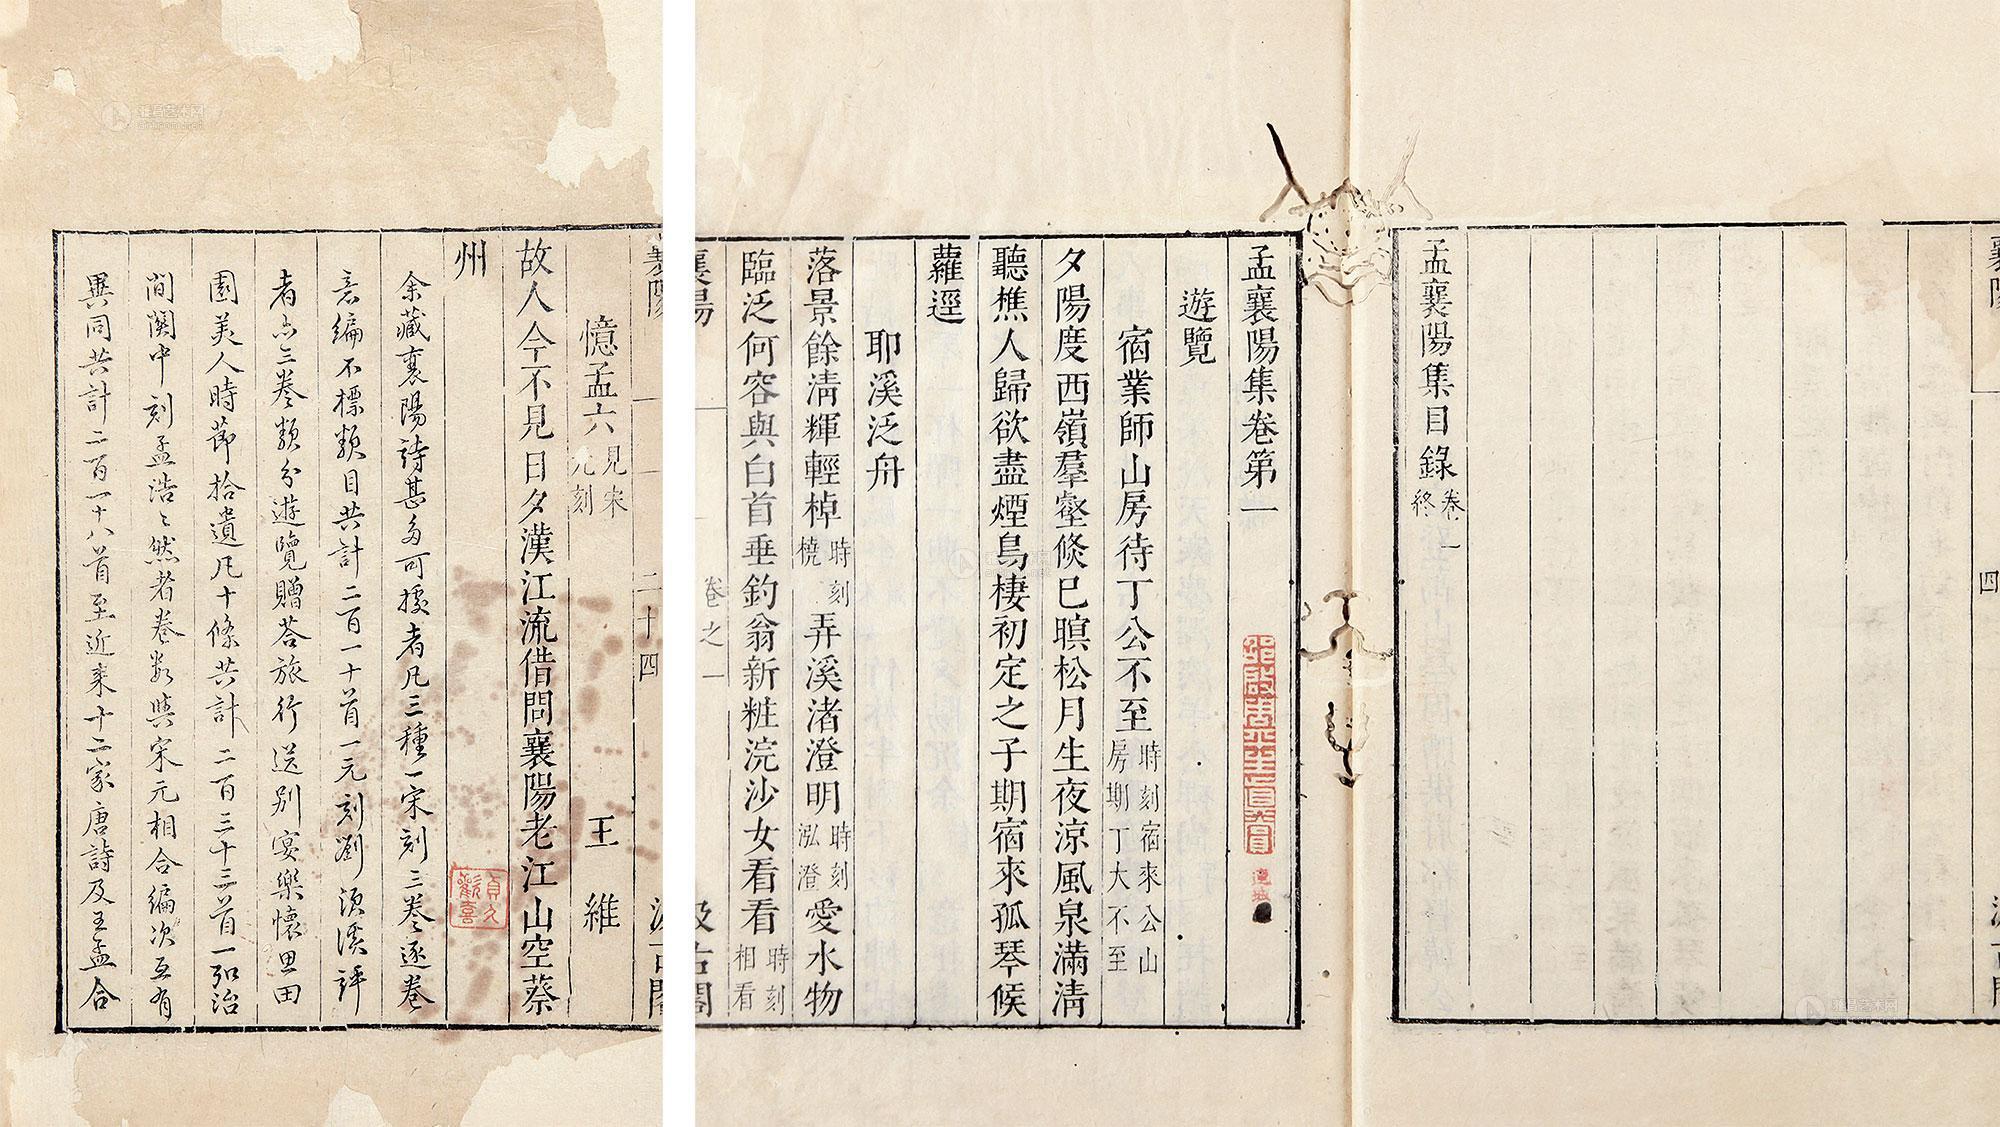 孟襄陽集目錄 卷一終
四
孟襄陽集卷第一
遊覽
宿業師山房待丁公不至 時刻宿來公山房期丁大不至
夕陽度西嶺羣壑倐已暝松月生夜涼風泉滿淸
聽樵人歸欲盡煙鳥棲初定之子期宿來孤琴候
蘿逕
耶溪泛舟
落景餘淸輝輕棹 時刻橈 弄溪渚澄明 時刻泓澄 愛水物
臨泛何容與白首垂釣翁新粧浣沙女看看 時刻相看
襄陽 卷之一 汲古閣
襄陽 二十四 汲古閣
憶孟六 見宋元刻 王維
故人今不見日夕漢江流借問襄陽老江山空蔡
州
余藏襄陽詩甚多可據者凡三種一宋刻三卷逐卷
意編不標類目共計二百一十首一元刻劉須溪評
者亦三卷類分遊覽贈荅旅行送別宴樂懷思田
園美人時節拾遺凡十條共計二百三十三首一弘治
間關中刻孟浩〻然者卷数與宋元相合編次互有
異同共計二百一十八首至近來十二家唐詩及王孟合
貞元
歡喜